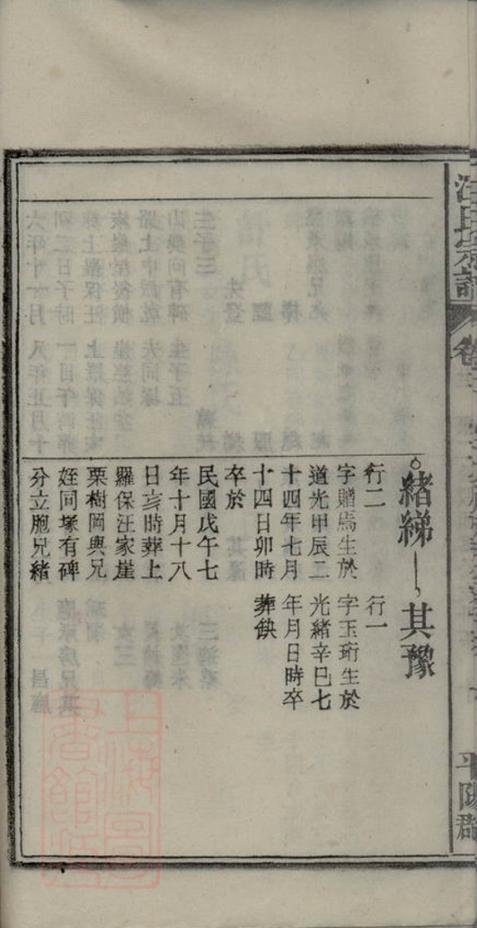 汪氏宗譜
平陽郡
緒綈
行二
字贈馬生於
道光甲辰二
十四年七月
十四日卯時
卒於
民國戊午七
年十月十八
日亥時葬上
羅保汪家崖
栗樹岡與兄
姪同塚有碑
分立胞兄緒
其豫
行一
字玉珩生於
光緒辛巳七
年月日時卒
葬缺